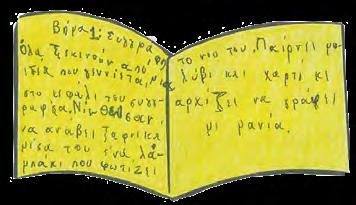 Βήμα 1: Συγγρα
φή
Όλα ξεκινούν από
ιδέα που γεννιέται μια
στο κεφάλι του συγγ
ραφέα. Νιώθει σαν
να ανάβει ξαφνικά
μέσα του ένα λα
μπάκι που φωτίζει
το νου του. Παίρνει μο
λύβι και χαρτί κι
αρχίζει να γράφει
με μανία.